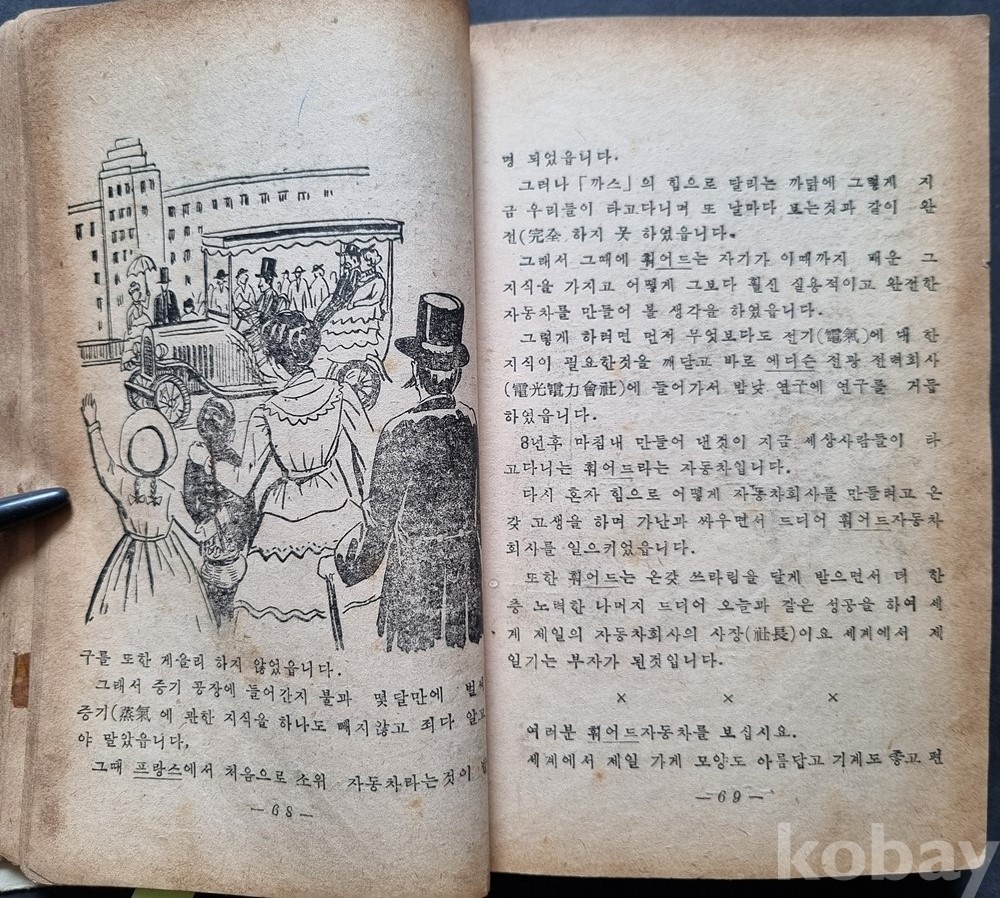 구를 또한 게을리 하지 않었읍니다.
그래서 증기 공장에 들어간지 불과 몇달만에 벌써
증기(蒸氣 에 관한 지식을 하나도 빼지않고 죄다 알고
야 말았읍니다,
그때 프랑스에서 처음으로 소위 자동차라는것이
—68—
명 되었읍니다.
그러나 「까스」의 힘으로 달리는 까닭에 그렇게 지
금 우리들이 타고다니며 또 날마다 보는것과 같이 완
전(完全 하지 못 하였읍니다.
그래서 그때에 휘어드는 자기가 이때까지 배운 그
지식을 가지고 어떻게 그보다 훨신 실용적이고 완전한
자동차를 만들어 볼 생각을 하였읍니다.
그렇게 하려면 먼저 무엇보다도 전기(電氣)에 대 한
지식이 필요한것을 깨달고 바로 에디슨 전광 전력회사
(電光電力會社)에 들어가서 밤낮 연구에 연구를 거듭
하였읍니다.
8년후 마침내 만들어 낸것이 지금 세상사람들이 타
고다니는 휘어드라는 자동차입니다.
다시 혼자 힘으로 어떻게 자동차회사를 만들려고 온
갖 고생을 하며 가난과 싸우면서 드디어 휘어드자동차
회사를 일으키었읍니다.
또한 휘어드는 온갖 쓰라림을 달게 받으면서 더 한
층 노력한 나머지 드디어 오늘과 같은 성공을 하여 세
게 제일의 자동차회사의 사장(社長)이요 세계에서 제
일기는 부자가 된것입니다.
× × ×
여러분 휘어드자동차를 보십시요.
세계에서 제일 가게 모양도 아름답고 기계도 좋고 편
—69—
kobay